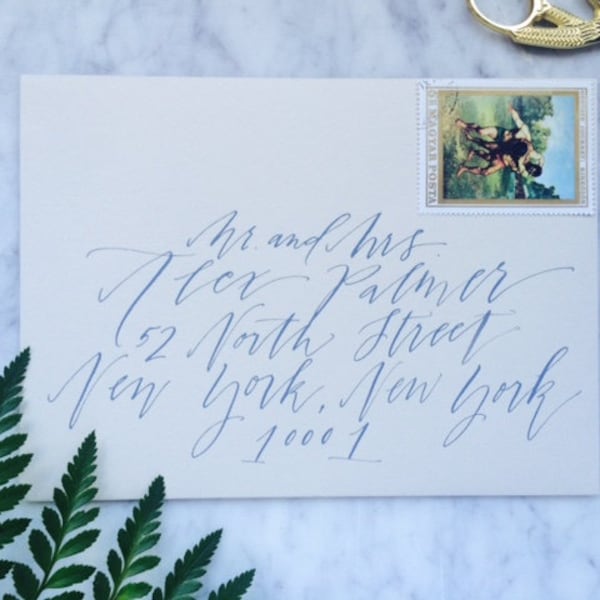 Mr. and Mrs.
Alex Palmer
52 North Street
New York, New York
10001
MAGYAR POSTA